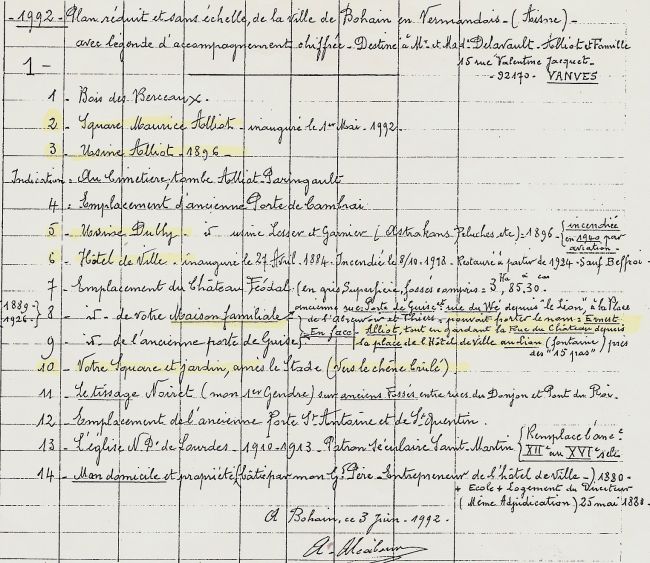 1992 - Plan réduit et sans échelle, de la ville de Bohain en Vermandois - (Aisne) -
avec légende d'accompagnement chiffrée - Destiné à Mr et Mad. Delavault - Alliot et Famille
15 rue Valentine Jacquet -
- 92170 - VANVES
1 -
1 - Bois des Berceaux -
2 - Square Maurice Alliot - inauguré le 1er Mai - 1992 -
3 - Usine Alliot - 1896 -
Indication = Au Cimetière, tombe Alliot - Paringault
4 - Emplacement d'ancienne Porte de Cambrai
5 - Usine Dully - usine Lesser et Garnier (Astrakans, Peluches, etc) = 1896 - {incendiée en 1940 par aviation -
6 - Hôtel de Ville - inauguré le 27 Avril - 1884 - Incendié le 8/10 - 1918 - Restauré à partir de 1924 - Sauf Beffroi -
7 - Emplacement du Château Féodal (en gris Superficie, fossés compris = 3 Ha, 85, 30 -
1889 - 1926 -} 8 - d° - de votre Maison familiale - ancienne rue: Porte de Guise - rue du Wé, depuis "le Lion", à la Place
de l'Abreuvoir et Thiers - pouvait porter le nom: Ernest
9 - d° - de l'ancienne porte de Guise} - En face - Alliot, tout en gardant la Rue du Château depuis
la place de l'Hôtel de Ville au Lion (fontaine) près
des "15 pas")
10 - Votre Square et jardin, après le Stade (Vers le chêne brûlé)
11 - Le tissage Noiret (mon 1er Gendre) sur anciens Fossés, entre rues du Donjon et Pont du Rix.
12 - Emplacement de l'ancienne Porte St Antoine et de St Quentin.
13 - L'église N. De de Lourdes - 1910 - 1913 - Patron Séculaire Saint-Martin {Remplace l'anc.e XIIe au XVIe siècle
14 - Mon domicile et propriété, (bâtie par mon Gd Père - Entrepreneur de l'hôtel de Ville -) 1880 -
+ Ecole + Logement du Directeur
(Même Adjudication) 25 mai 1880 -
A Bohain, ce 3 Juin - 1992 -